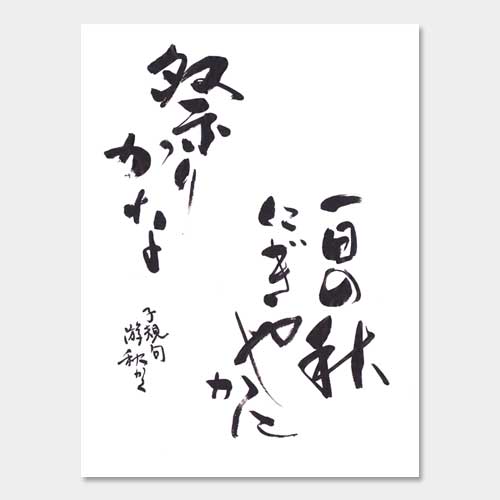 一日の秋
にぎ
やかに
祭り
かな
子規句
游秋かく